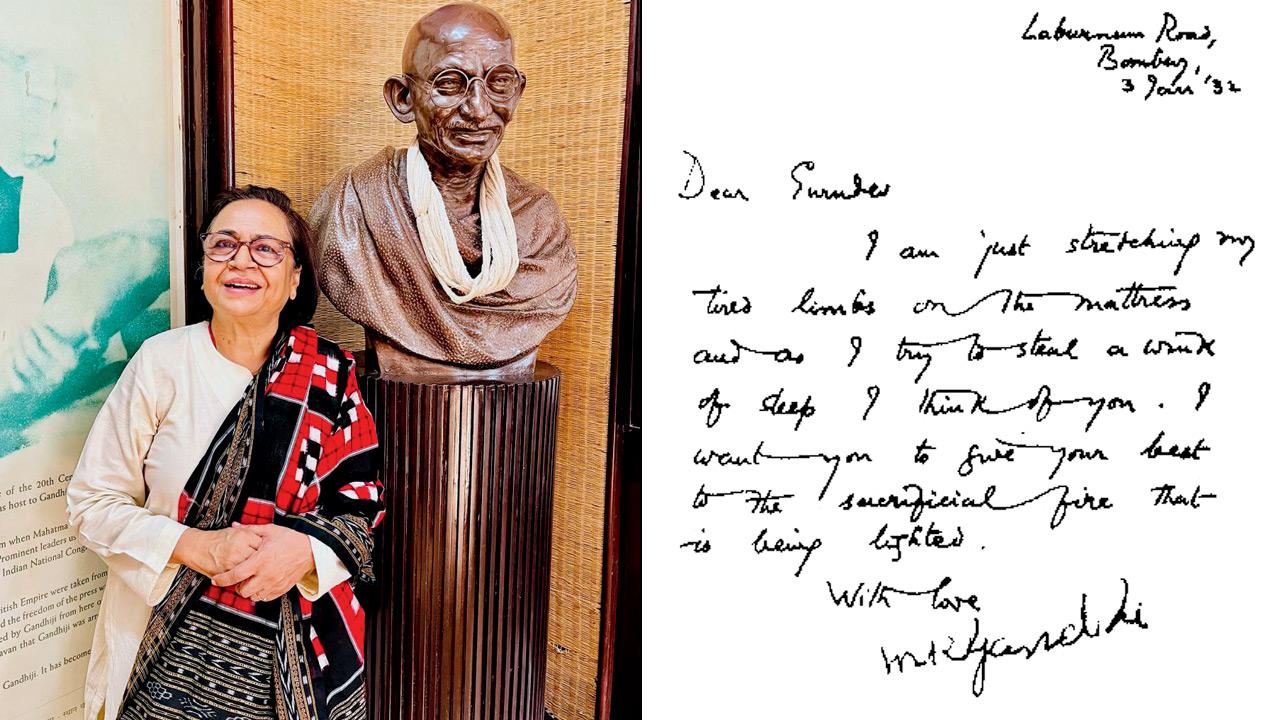 e of the 20th Cen
as host to Gandhi
m when Mahatma
Prominent leaders us
Indian National Cong
itish Empire were taken from
d the freedom of the press w
ed by Gandhiji from here o
avan that Gandhiji was arr
Gandhiji. It has become
Laburnum Road,
Bombay,
3 Jan '32
Dear Gurudev
I am just stretching my
tired limbs on the mattress
and as I try to steal a wink
of sleep I think of you. I
want you to give your best
to the sacrificial fire that
is being lighted.
With love
MKGandhi